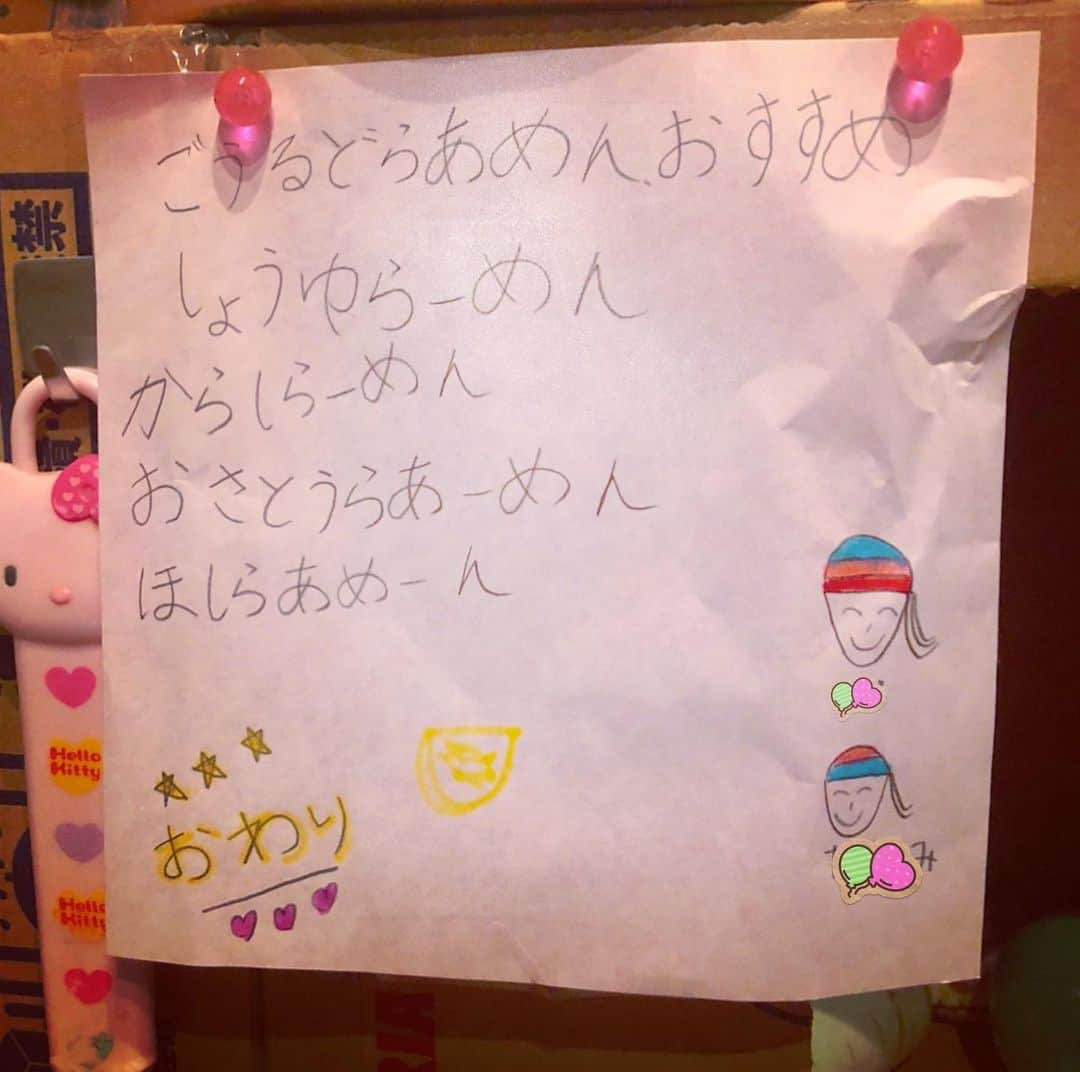 ごうるどらあめん、おすすめ
しょうゆらーめん
からしらーめん
おさとうらあーめん
ほしらあめーん
おわり
み
禁
Hello Kitty
Hello Kitty